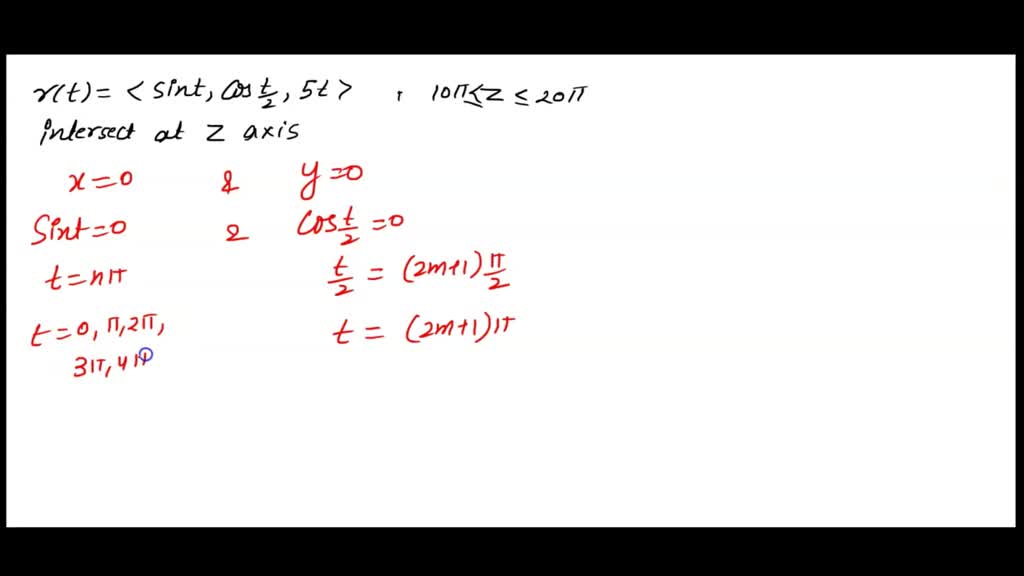 r(t) = < sint, cos t/2, 5t > , 10π ≤ z ≤ 20π
intersect at z axis
x = 0 & y = 0
Sint = 0 & cos t/2 = 0
t = nπ t/2 = (2m+1) π/2
t = 0, π, 2π, t = (2m+1) π
3π, 4π